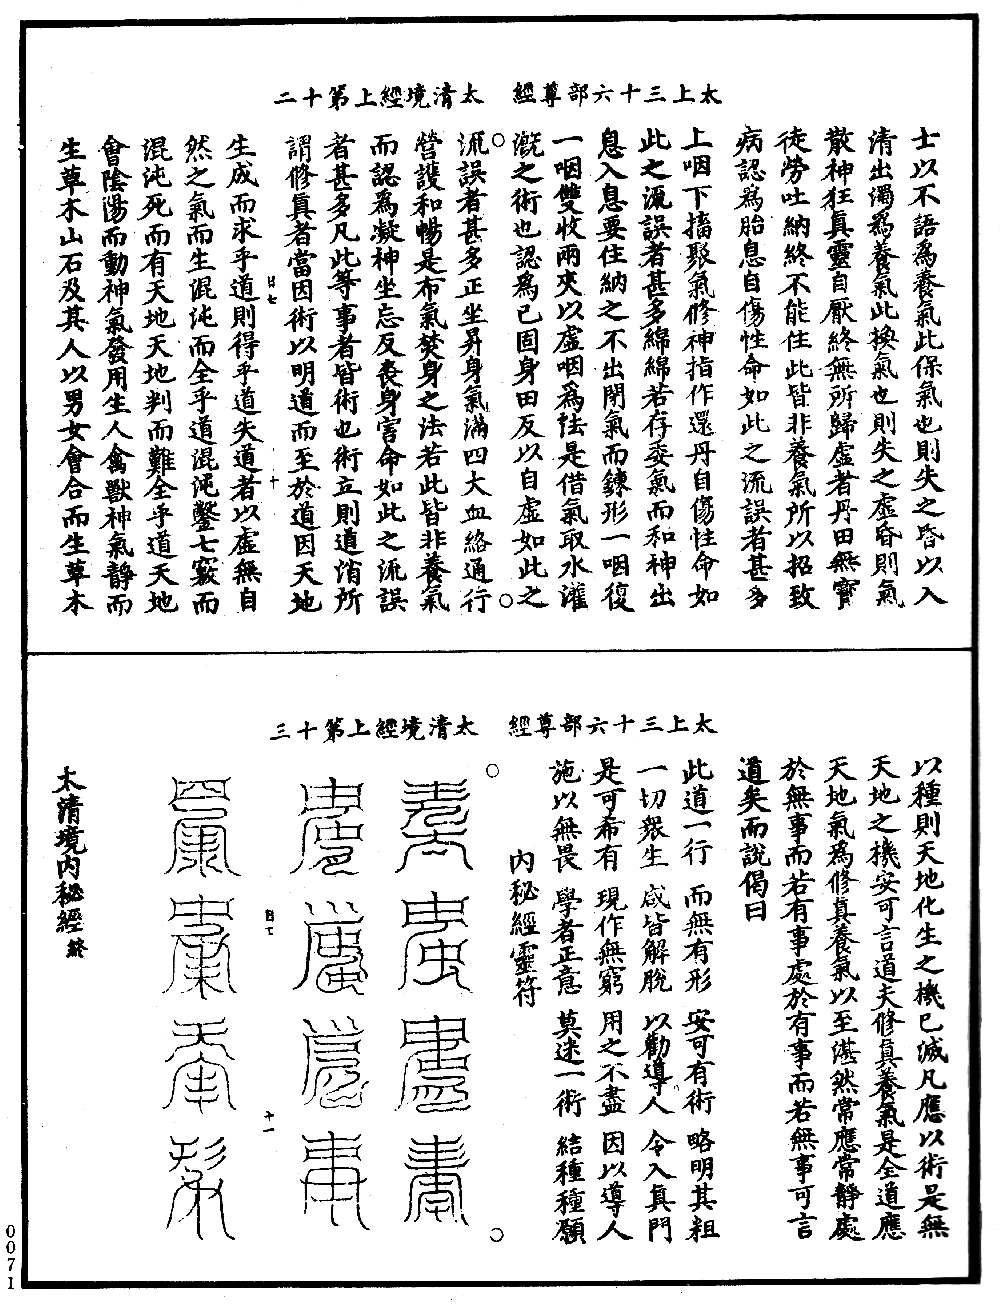 太上三十六部尊經　太清境經上第十二
士以不語爲養氣此保氣也則失之昏以入
清出濁爲養氣此換氣也則失之虛昏則氣
散神狂真靈自厭終無所歸虛者丹田無寶
徒勞吐納終不能住此皆非養氣所以招致
病認爲胎息自傷性命如此之流誤者甚多
上咽下搐聚氣修神指作還丹自傷性命如
此之流誤者甚多綿綿若存委氣而和神出
息入息要住納之不出閉氣而鍊形一咽復
一咽雙收兩夾以虛咽爲法是借氣取水灌
溉之術也認爲已固身田反以自虛如此之
流誤者甚多正坐昇身氣滿四大血絡通行
營護和暢是布氣焚身之法若此皆非養氣
而認爲凝神坐忘反喪身害命如此之流誤
者甚多凡此等事者皆術也術立則道悄所
謂修真者當因術以明道而至於道因天地
生成而求乎道則得乎道失道者以虛無自
然之氣而生混沌而全乎道混沌鑿七竅而
混沌死而有天地天地判而難全乎道天地
會陰陽而動神氣發用生人禽獸神氣靜而
生草木山石及其人以男女會合而生草木
太上三十六部尊經　太清境經上第十三
以種則天地化生之機已滅凡應以術是無
天地之機安可言道夫修真養氣是全道應
天地氣爲修真養氣以至湛然常應常靜處
於無事而若有事處於有事而若無事可言
道矣而說偈曰
此道一行　而無有形　安可有術　略明其粗
一切眾生　咸皆解脫　以勸導人　令入真門
是可希有　現作無窮　用之不盡　因以導人
施以無畏　學者正意　莫迷一術　結種種願
內秘經靈符
太清境內秘經終
0071